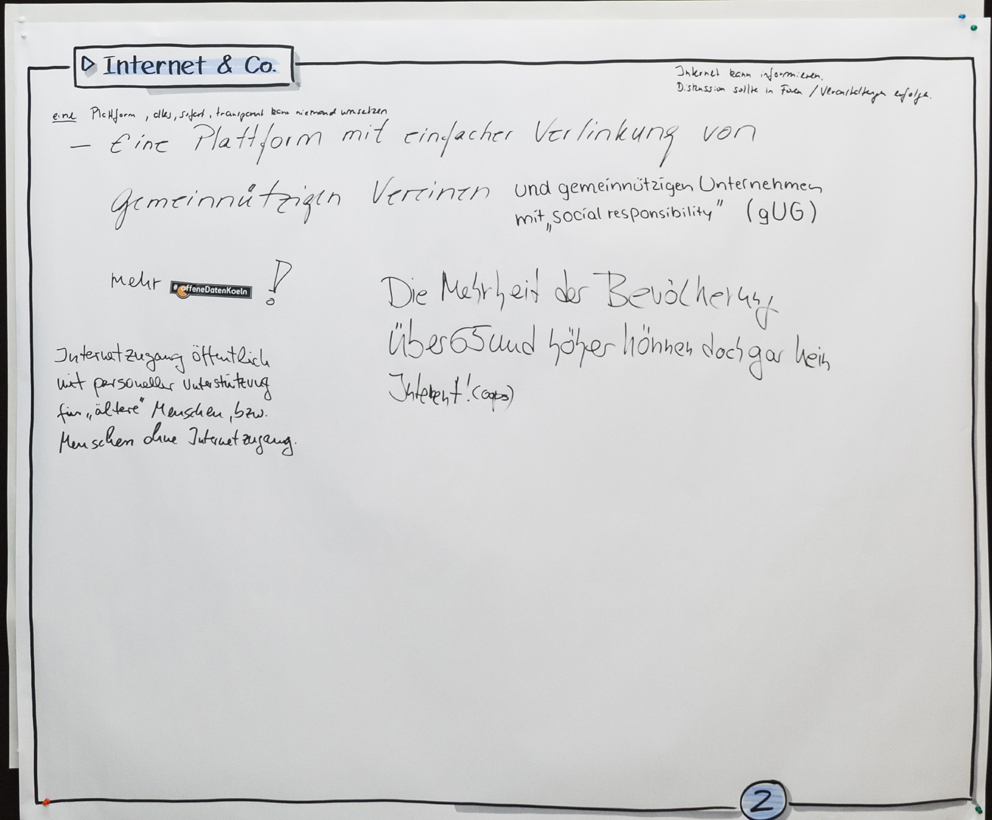 ▷ Internet & Co.
Internet kann informieren.
Diskussion sollte in Foren / Veranstaltungen erfolgen.
eine Plattform, alles, sofort, transparent kann niemand umsetzen
– Eine Plattform mit einfacher Verlinkung von
gemeinnützigen Vereinen und gemeinnützigen Unternehmen
mit „social responsibility" (gUG)
mehr #offeneDatenKoeln !
Die Mehrheit der Bevölkerung
Über 65 und höher können doch gar kein
Internet! (oops)
Internetzugang öffentlich
mit personeller Unterstützung
für „ältere" Menschen, bzw.
Menschen ohne Internetzugang.
2